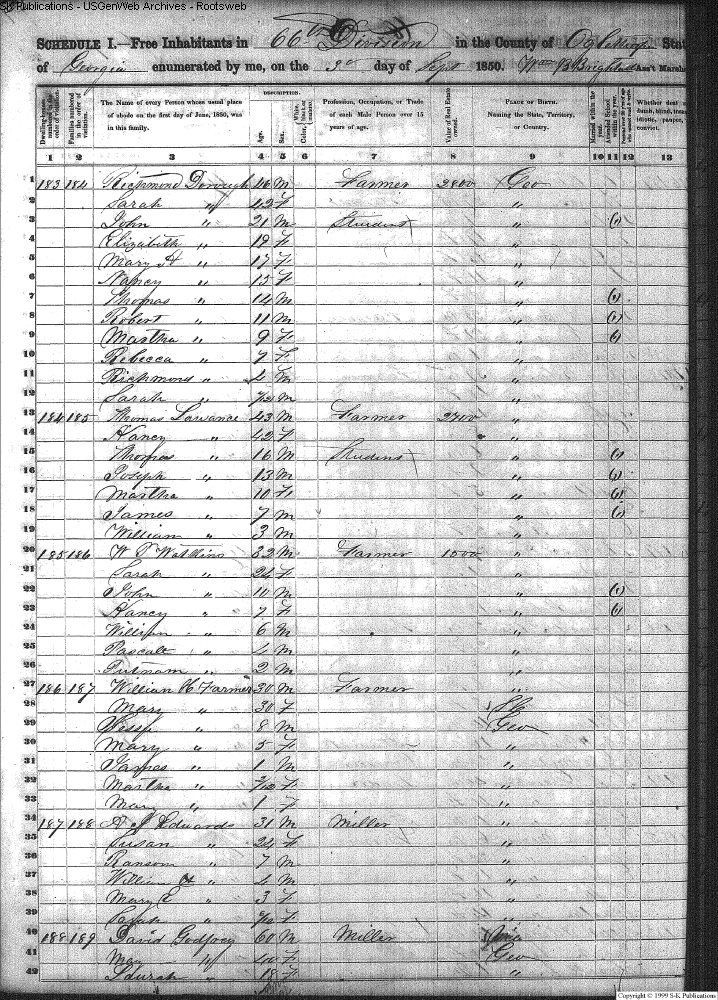 S-K Publications - USGenWeb Archives - Rootsweb
SCHEDULE I.—Free Inhabitants in 66th Division in the County of State
of Georgia enumerated by me, on the 3d day of Sept 1850. Ass't Marshal
DESCRIPTION.
Dwelling-houses numbered in the order of visitation. Families numbered in the order of visitation. The Name of every Person whose usual place of abode on the first day of June, 1850, was in this family. Age. Sex. Color, White, black, or mulatto. Profession, Occupation, or Trade of each Male Person over 15 years of age. Value of Real Estate owned. Place of Birth. Naming the State, Territory, or Country. Married within the year. Attended School within the year. Whether deaf and dumb, blind, insane, idiotic, pauper, or convict.
1 2 3 4 5 6 7 8 9 10 11 12 13
1 183 184 Richmond Dorough 46 M Farmer 2800 Geo
2 Sarah " 42 F "
3 John " 21 M Student " (1)
4 Elizabeth " 19 F "
5 Mary A " 17 F "
6 Nancy " 15 F "
7 Thomas " 14 M " (1)
8 Robert " 11 M " (1)
9 Martha " 9 F " (1)
10 Rebecca " 7 F "
11 Richmond " 4 M "
12 Sarah " F "
13 184 185 Thomas Lawrance 43 M Farmer 2700 "
14 Nancy " 42 F "
15 Thomas " 16 M Student " (1)
16 Joseph " 13 M " (1)
17 Martha " 10 F " (1)
18 James " 7 M " (1)
19 William " 3 M "
20 185 186 W Watkins 32 M Farmer 1500 "
21 Sarah " 24 F "
22 John " 10 M " (1)
23 Nancy " 7 F " (1)
24 William " 6 M "
25 Pascal " 4 M "
26 Putnam " 2 M "
27 186 187 William H Farmer 30 M Farmer "
28 Mary " 30 F
29 Jesse " 8 M Geo
30 Mary " 5 F "
31 James " 1 M "
32 Martha " F "
33 Mary " 1 F "
34 187 188 A J Edwards 31 M Miller "
35 Susan " 24 F "
36 Ransom " 7 M "
37 William H " 4 M "
38 Mary E " 3 F "
39 Sarah " F "
40 188 189 David Godfrey 60 M Miller
41 May " 40 F Geo
42 " 18 F "
Copyright © 1999 S-K Publications